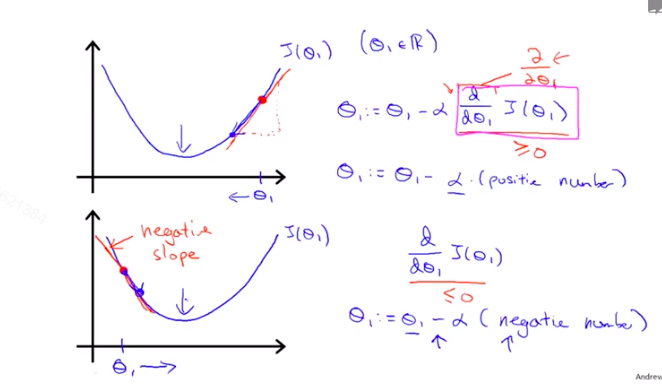 J(θ₁) (θ₁ ∈ ℝ)
∂/∂θ₁ ←
θ₁ := θ₁ - α d/dθ₁ J(θ₁)
≥ 0
θ₁ := θ₁ - α · (positie number)
← θ₁
negative
slope
J(θ₁)
d/dθ₁ J(θ₁)
≤ 0
θ₁ := θ₁ - α (negatie number)
θ₁ →
Andrew